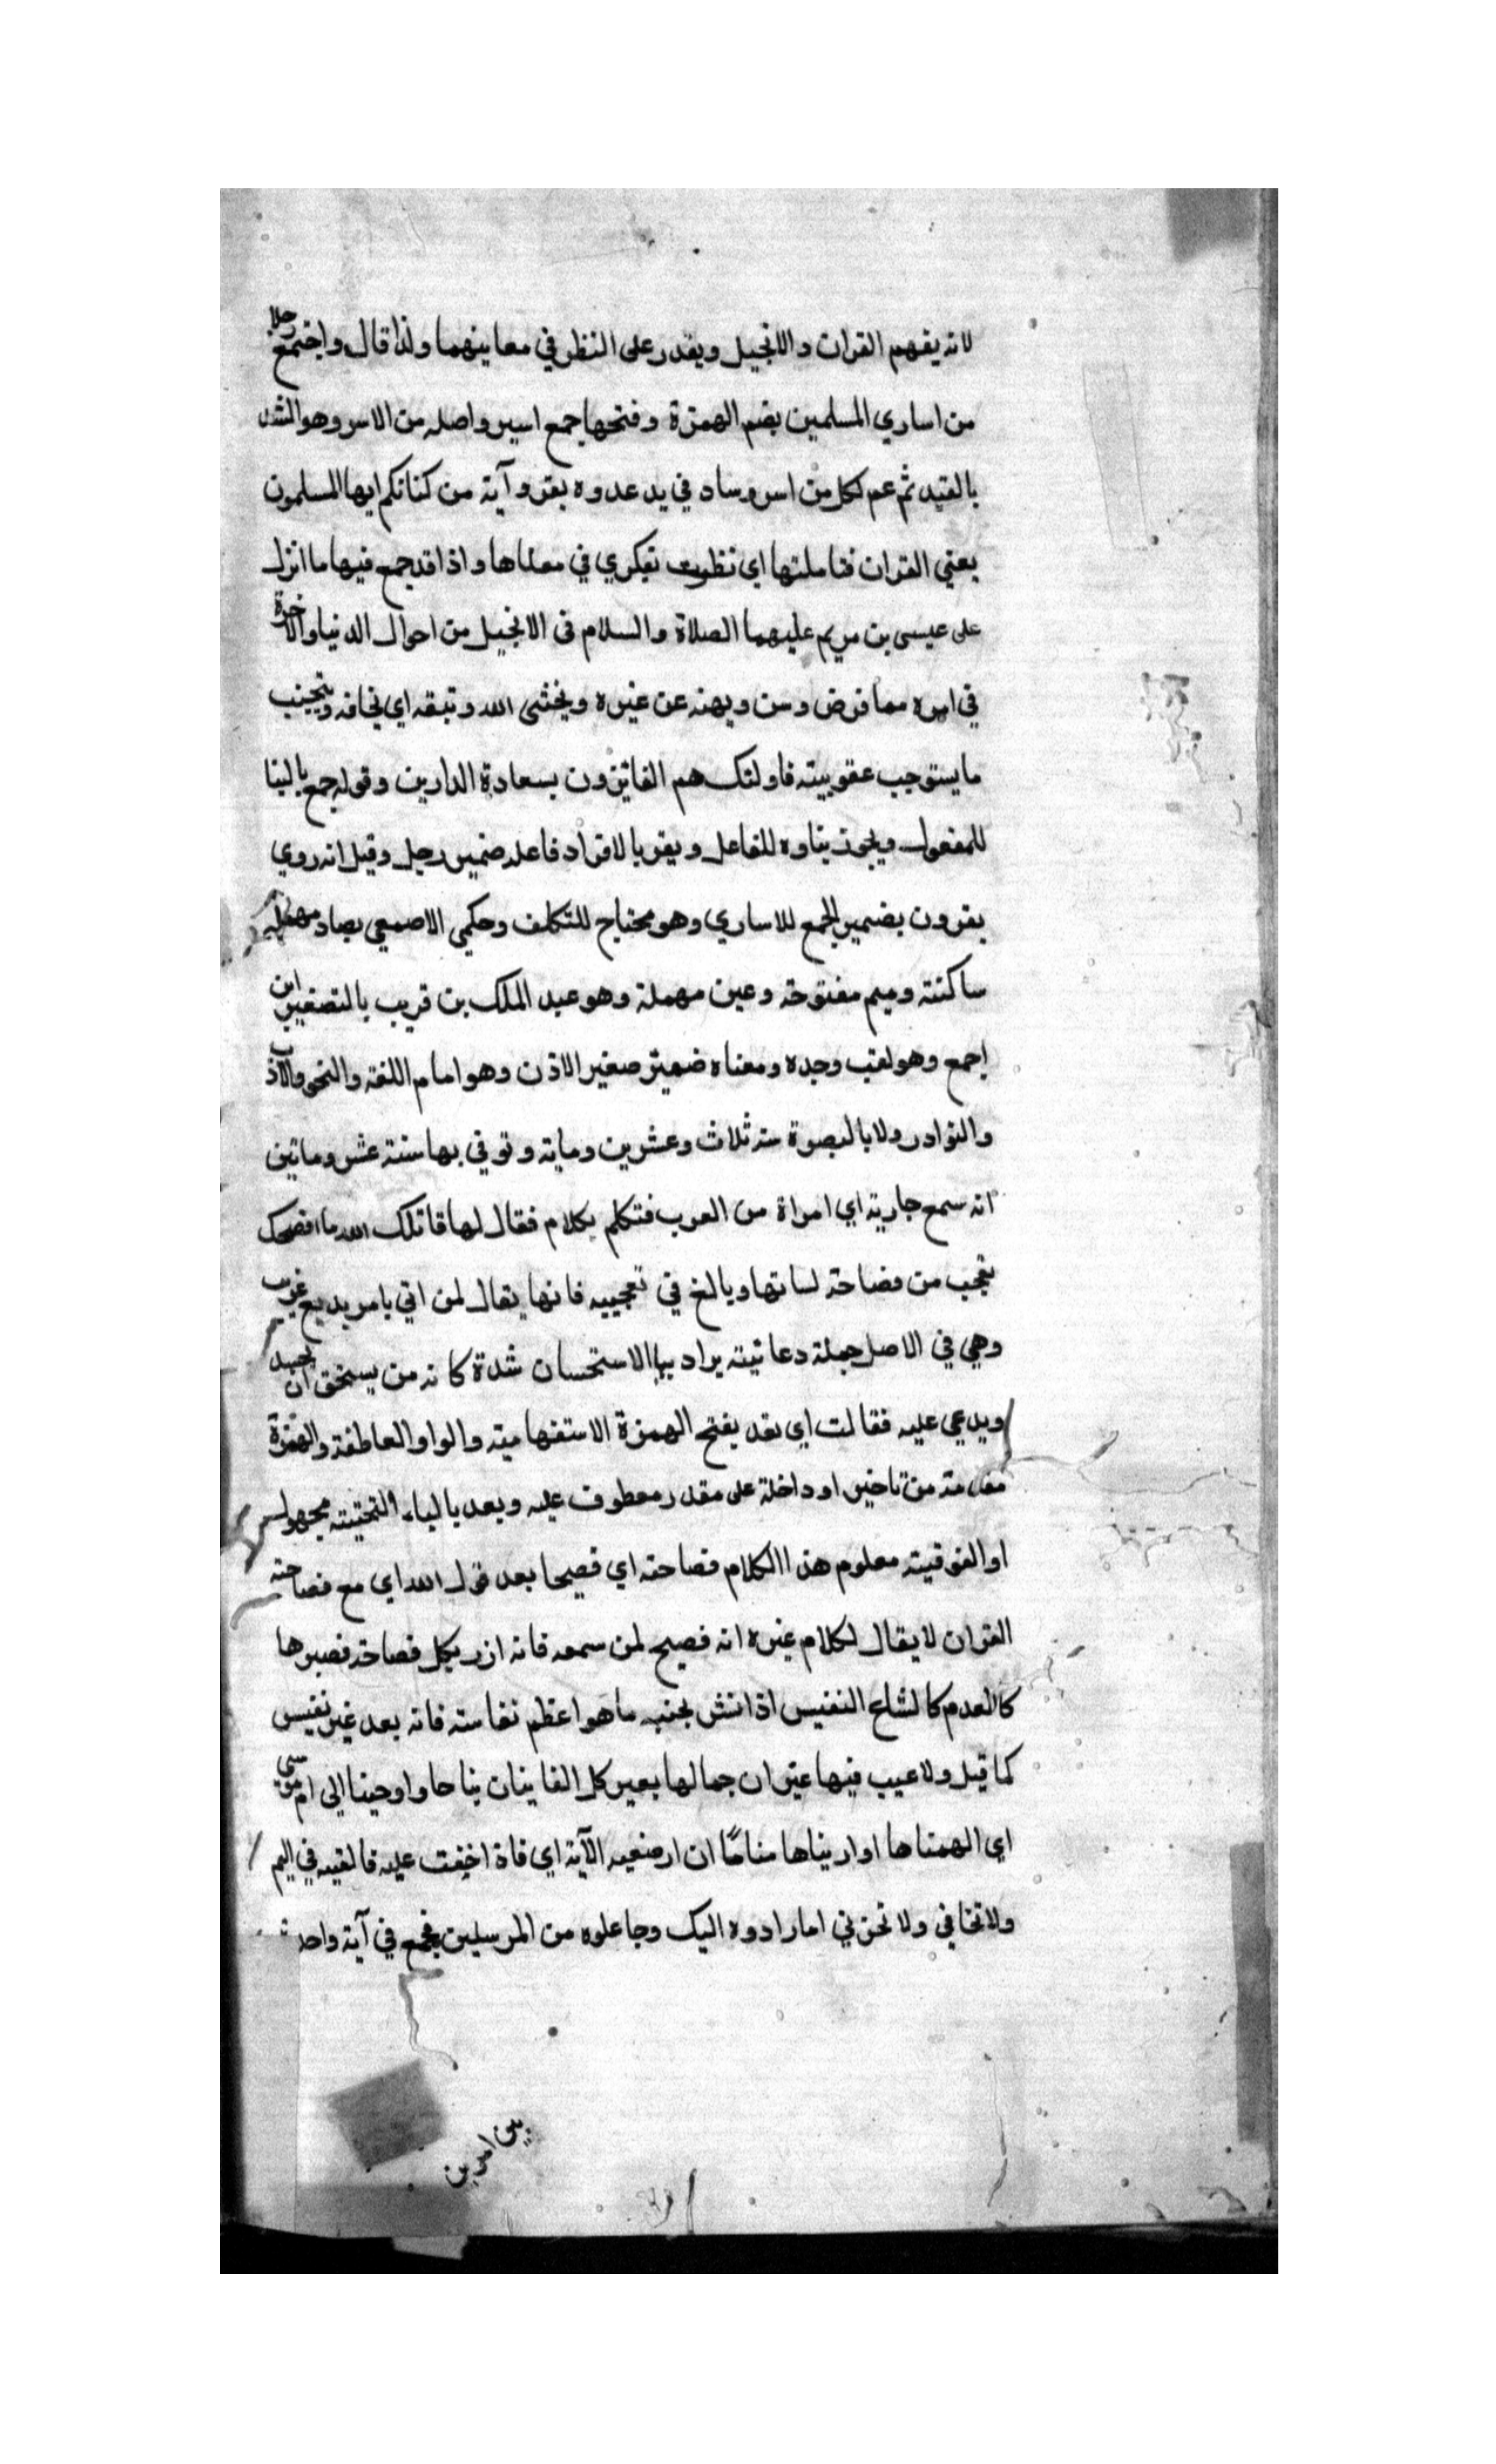 لانه يفهم القران والانجيل ويقدر على النظر في معاينهما ولذا قال واجتمع رجلا
من اساري المسلمين بضم الهمزة وفتحها جمع اسير واصله من الاسر وهو الشد
بالقيد ثم عم لكل من اسر وساد في يد عدوه يقرو آية من كتابكم ايها المسلمون
يعني القران فتاملتها اي نظرت بفكري في معناها واذا قد جمع فيها ما انزل
على عيسى بن مريم عليهما الصلاة والسلام في الانجيل من احوال الدنيا والاخرة
في امره مما فرض وسن وبهنه عن غيره ويخشى الله وتبقه اي يخافه ويتجنب
ما يستوجب عقوبيته فاولئك هم الفائزون بسعادة الدارين وقوله جمع بالبنا
للمفعول ويجوز بناوه للفاعل ويقر بالافراد فاعله ضمير رجل وقيل انه روي
يقرون بضمير الجمع للاساري وهو محتاج للتكلف وحكمي الاصمعي بصاد مهملة
ساكنته وميم مفتوحة وعين مهملة وهو عبد الملك بن قريب بالتصغير ابن
اجمع وهو لقب وجده ومعناه ضميز صغير الاذن وهو امام اللغة والنحو والآذب
والنوادر ولا بالبصوة سنه ثلاث وعشرين ومايه وتوفي بها سنة عشر وماتين
انه سمع جارية اي امراة من العرب فتكلم بكلام فقال لها قاتلك الله ما افصحك
يتجب من فصاحة لسانها ويالغ في تعجيبه فانها يقال لمن اتي بامر بديع غريب
وهي في الاصل جملة دعائيته يراد بها الاستحسان شدة كانه من يستحق ان يحسد
ويدعي عليه فقالت اي نقد يفتح الهمزة الاستفهاميته والواو العاطفة والهمزة
مقدمته من تاخير او داخلة على مقدر معطوف عليه ويعد بالياء التحتيته مجهول
او الفوقيته معلوم هذا الكلام فصاحته اي فصيحا بعد قول الله اي مع فصاحته
القران لا يقال لكلام غيره انه فصيح لمن سمعه فانه ازر بكل فصاحة فصيرها
كالعدم كالشاع النفيس اذا نش بجنب ماهوا عظم نفاسته فانه يعد غير نفيس
كما قيل ولا عيب فيها غير ان جمالها بعير كل الغاينات بناحا واوحينا الى ام موسى
اي الهمناها او اريناها مناماً ان ارضعيه الآية اي فاذ اخفت عليه فالقيه في اليم
ولا تخافي ولا تحزني اما رادوه اليك وجاعلوه من المرسلين فجمع في آية واحدة
بين امرين